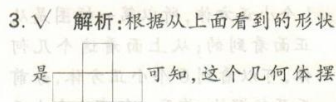 3. √ 解析:根据从上面看到的形状
是 可知,这个几何体摆